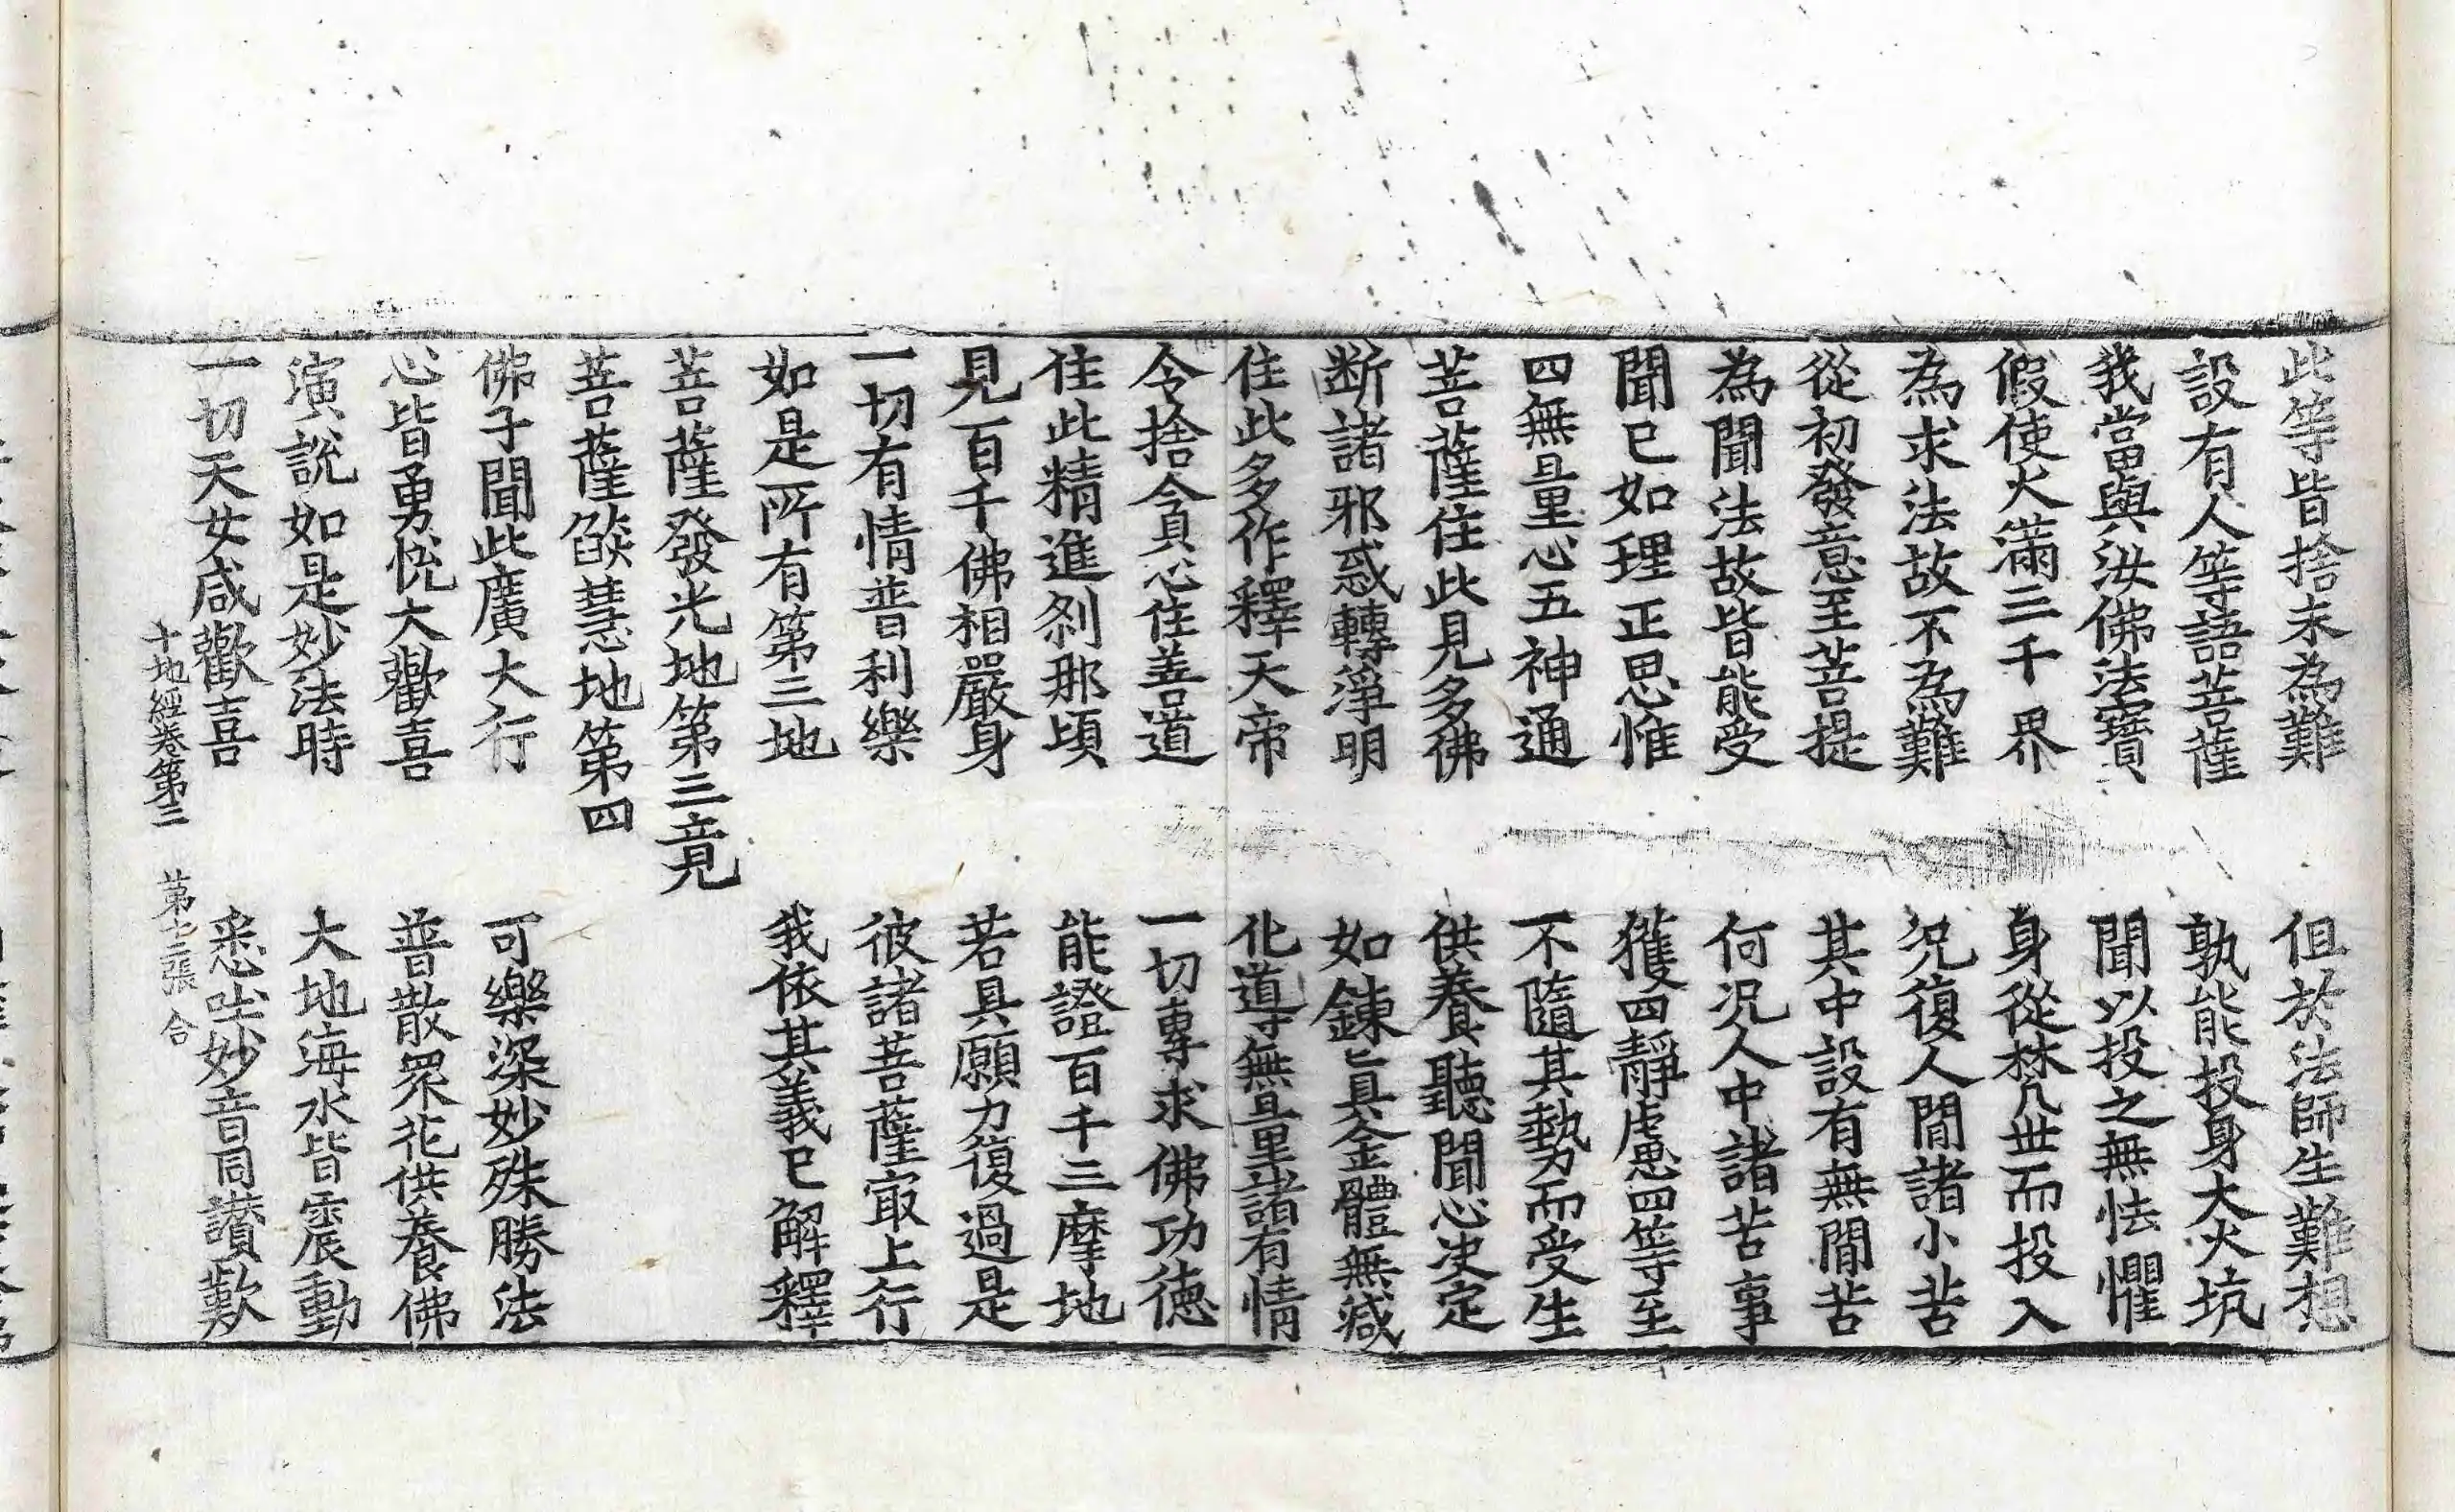 此等皆捨未為難　但於法師生難想
設有人等語菩薩　孰能投身大火坑
我當與汝佛法寶　聞以投之無怯懼
假使火滿三千界　身從梵世而投入
為求法故不為難　況復人間諸小苦
從初發意至菩提　其中設有無間苦
為聞法故皆能受　何況人中諸苦事
聞已如理正思惟　獲四靜慮四等至
四無量心五神通　不隨其勢而受生
菩薩住此見多佛　供養聽聞心決定
断諸邪惑轉淨明　如鍊真金體無減
住此多作釋天帝　化導無量諸有情
令捨貪心住善道　一切專求佛功德
住此精進剎那頃　能證百千三摩地
見百千佛相嚴身　若具願力復過是
一切有情普利樂　彼諸菩薩㝡上行
如是所有第三地　我依其義已解釋
菩薩發光地第三竟
菩薩焰慧地第四
佛子聞此廣大行　可樂深妙殊勝法
心皆勇悅大歡喜　普散眾花供養佛
演說如是妙法時　大地海水皆震動
一切天女咸歡喜　悉吐妙音同讚歎
十地經卷第三　第十二張　合